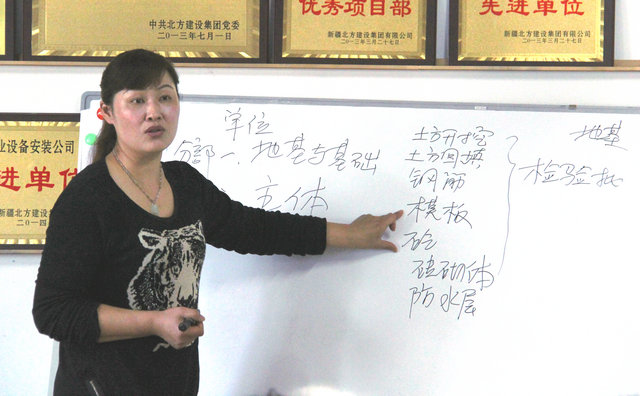 中共北方建设集团党委
二〇一三年七月一日
优秀项目部
新疆北方建设集团有限公司
二〇一三年三月二十七日
先进单位
新疆北方建设集团有限公司
二〇一三年三月二十七日
业设备安装公司
进单位
新疆北方建设
二〇一四
单位
分部一、地基与基础
主体
土方开挖
土方回填
钢筋
模板
砼
砖砌体
防水层
地基
检验批